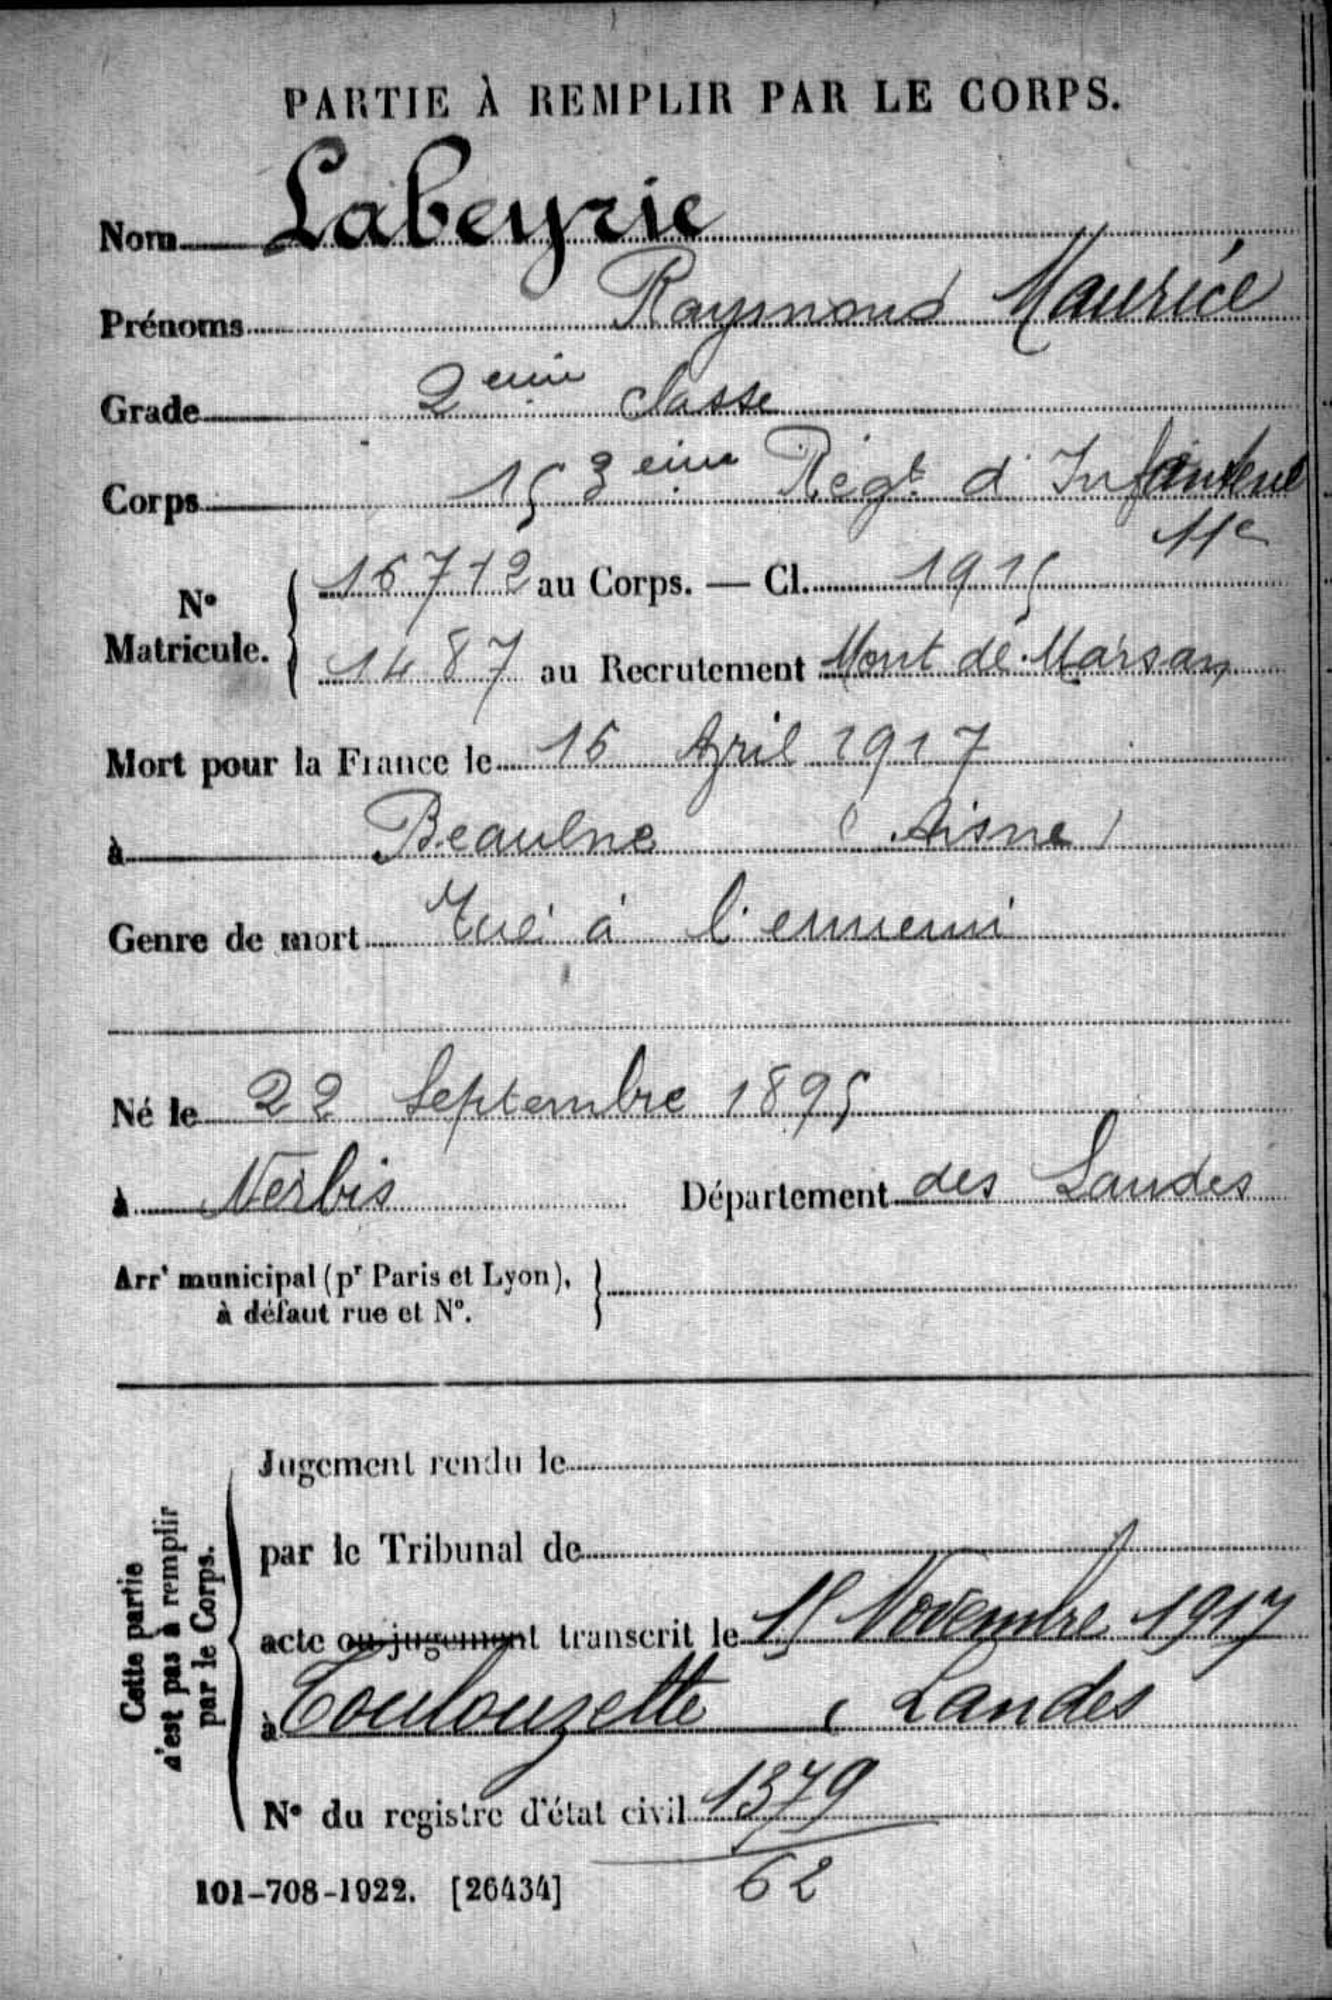 PARTIE À REMPLIR PAR LE CORPS.
Nom Labeyrie
Prénoms Raymond Maurice
Grade 2eme classe
Corps 153eme Régt d'Infanterie
11e
No Matricule. 16712 au Corps. — Cl. 1915
1487 au Recrutement Mont de Marsan
Mort pour la France le 16 Avril 1917
à Beaulne (Aisne)
Genre de mort Tué à l'ennemi
Né le 22 Septembre 1895
à Nerbis Département des Landes
Arrt municipal (pr Paris et Lyon),
à défaut rue et No.
Cette partie n'est pas à remplir par le Corps.
Jugement rendu le
par le Tribunal de
acte ou jugement transcrit le 15 Novembre 1917
à Toulouzette, Landes
No du registre d'état civil 1379
62
101-708-1922. [26434]